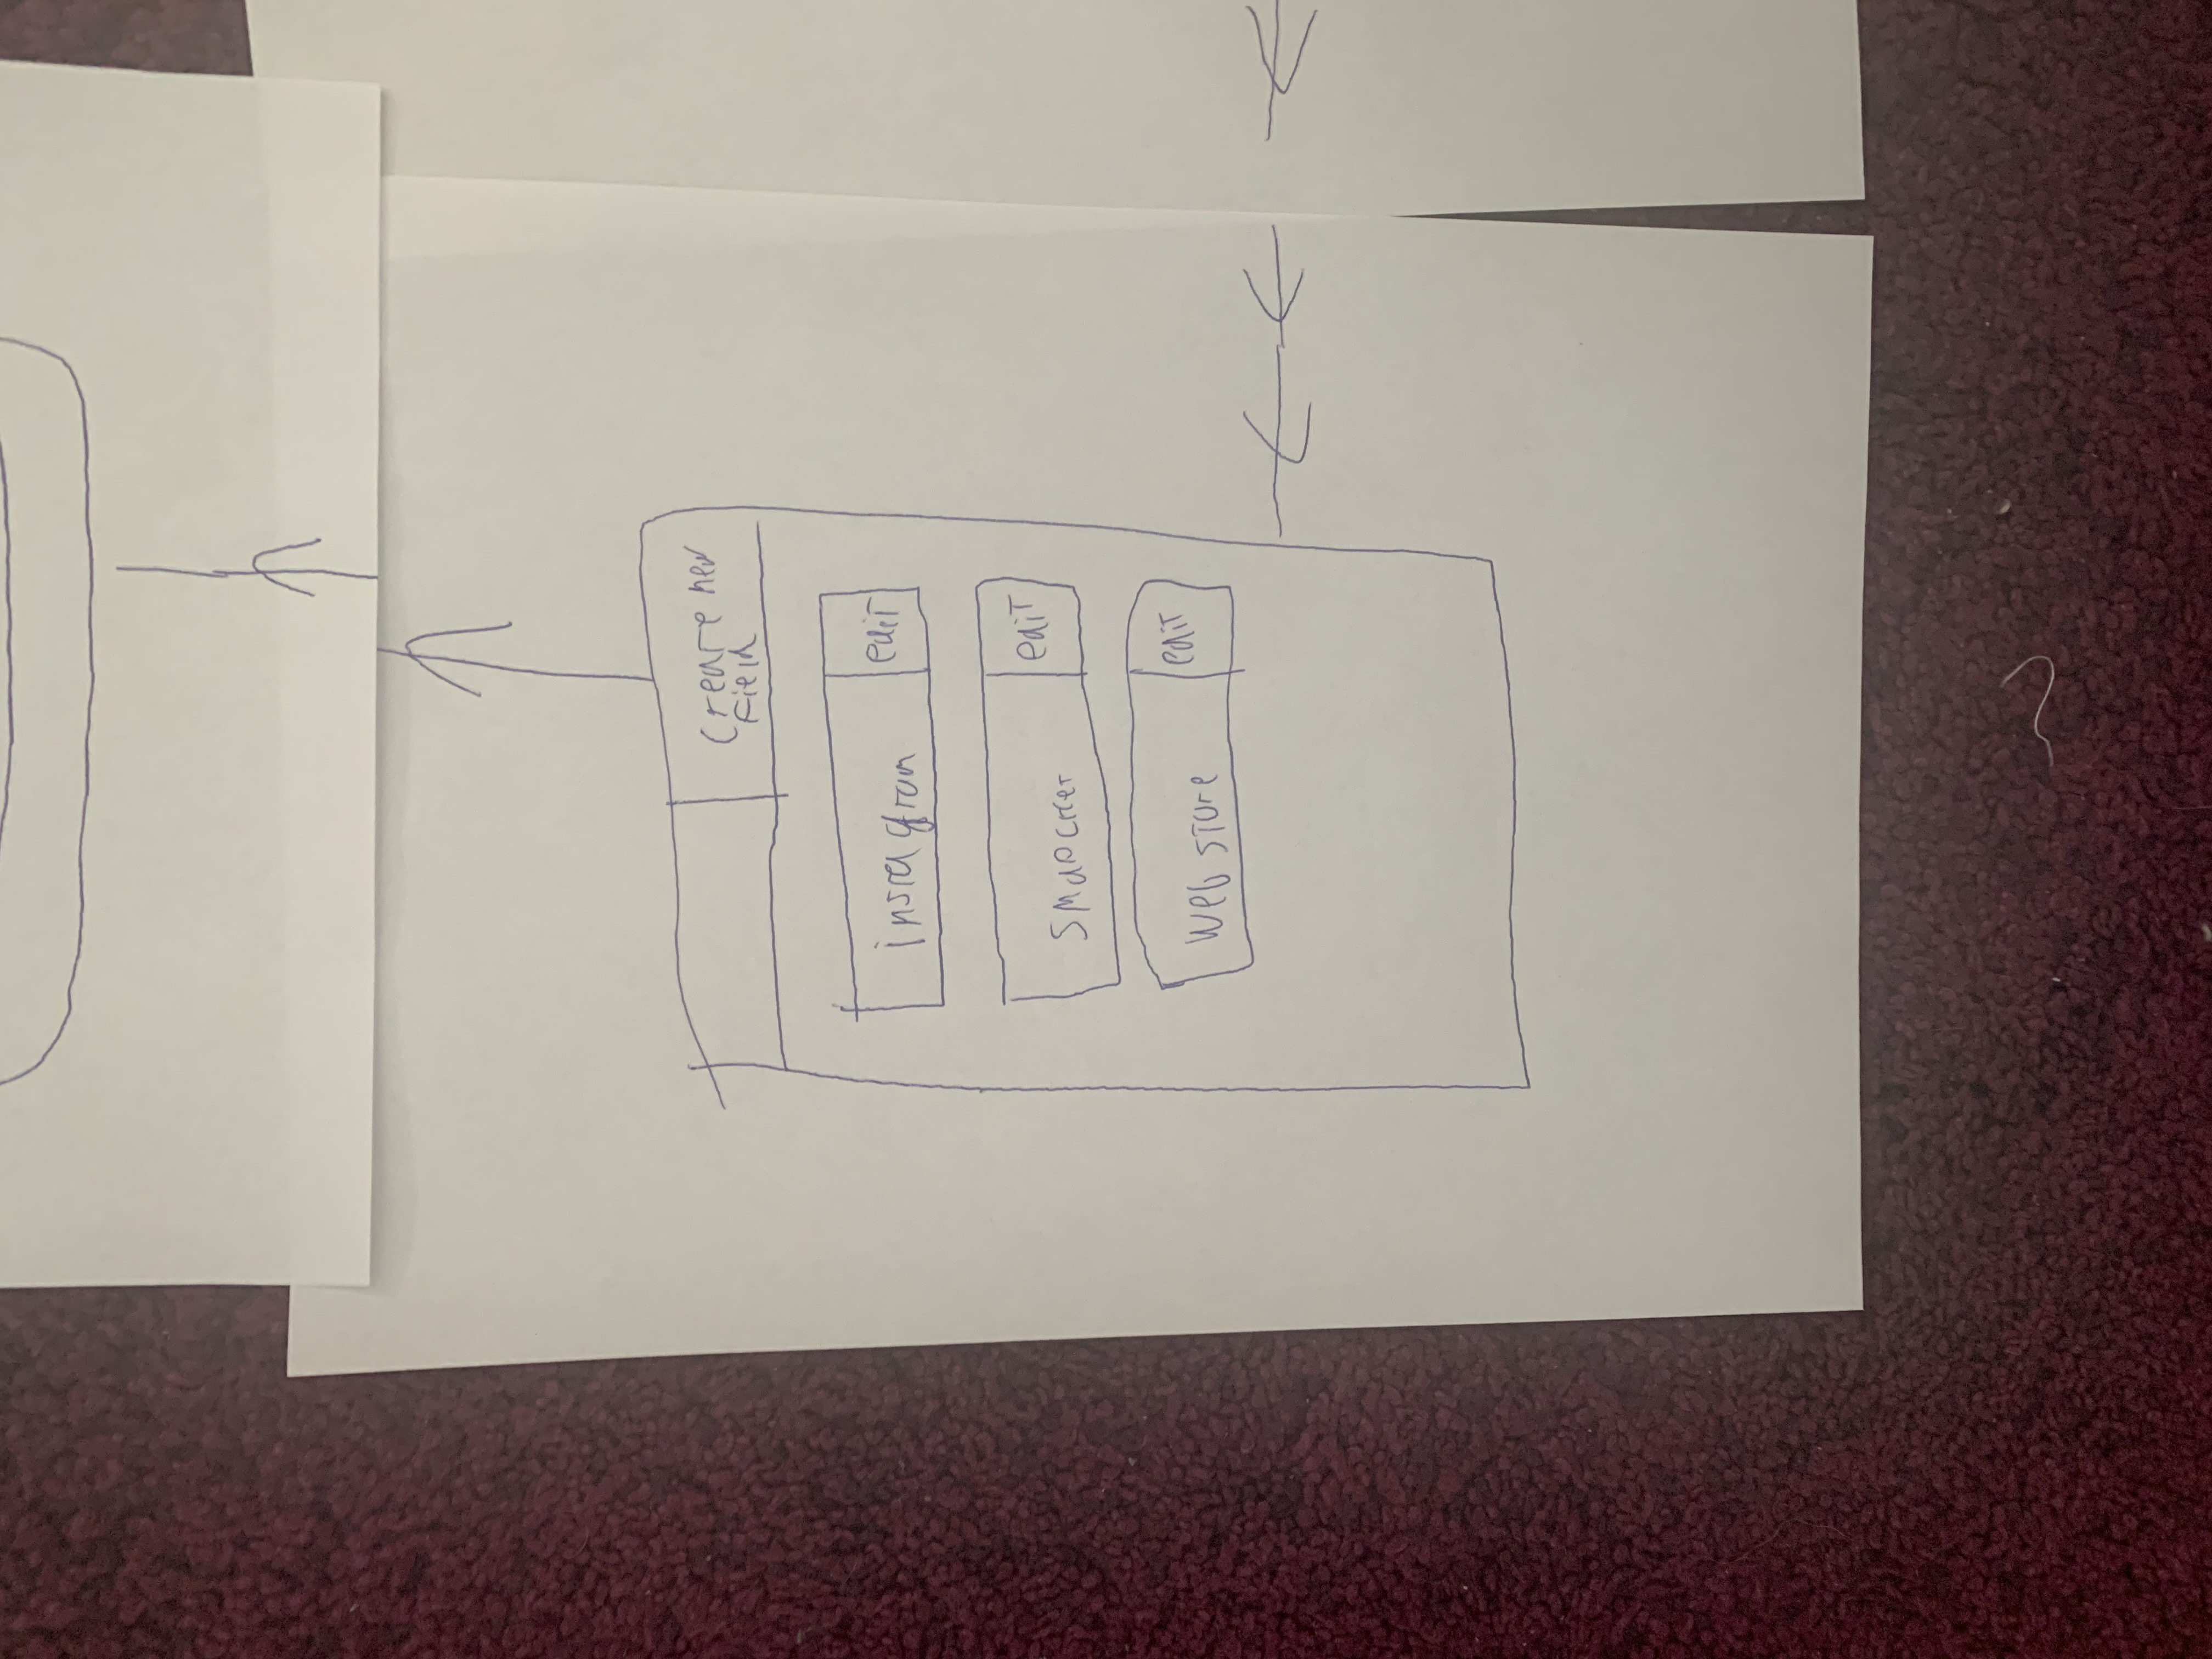 Create new
Field
instagram
edit
edit
web store
edit